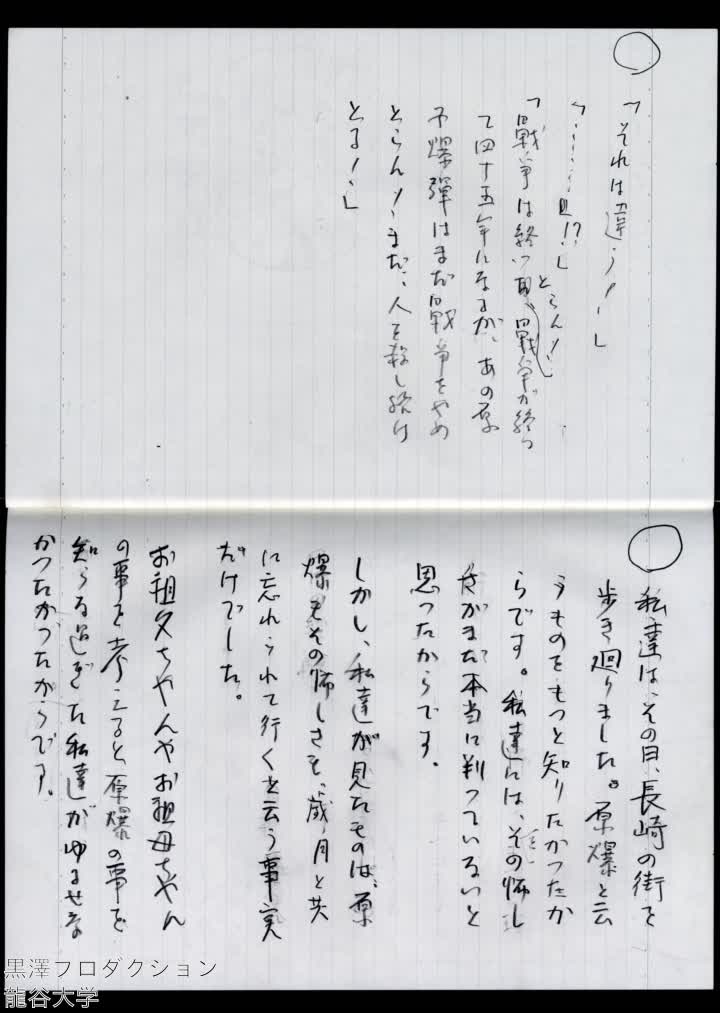 「それは違う！」
「……！？」
「戦争は終っとらん！戦争が終っ
て四十五年になるが、あの原
子爆弾はまだ戦争をやめ
とらん！まだ、人を殺し続け
とる！」
私達は、その日、長崎の街を
歩き廻りました。原爆と云
うものをもっと知りたかったか
らです。私達には、その怖し
さがまだ本当に判っていないと
思ったからです。
しかし、私達が見たものは、原
爆もその怖しさも、歳月と共
に忘れられて行くと云う事実
だけでした。
お祖父ちゃんやお祖母ちゃん
の事を考えると原爆の事を
知らな過ぎた私達がゆるせな
かったからです。
黒澤プロダクション
龍谷大学